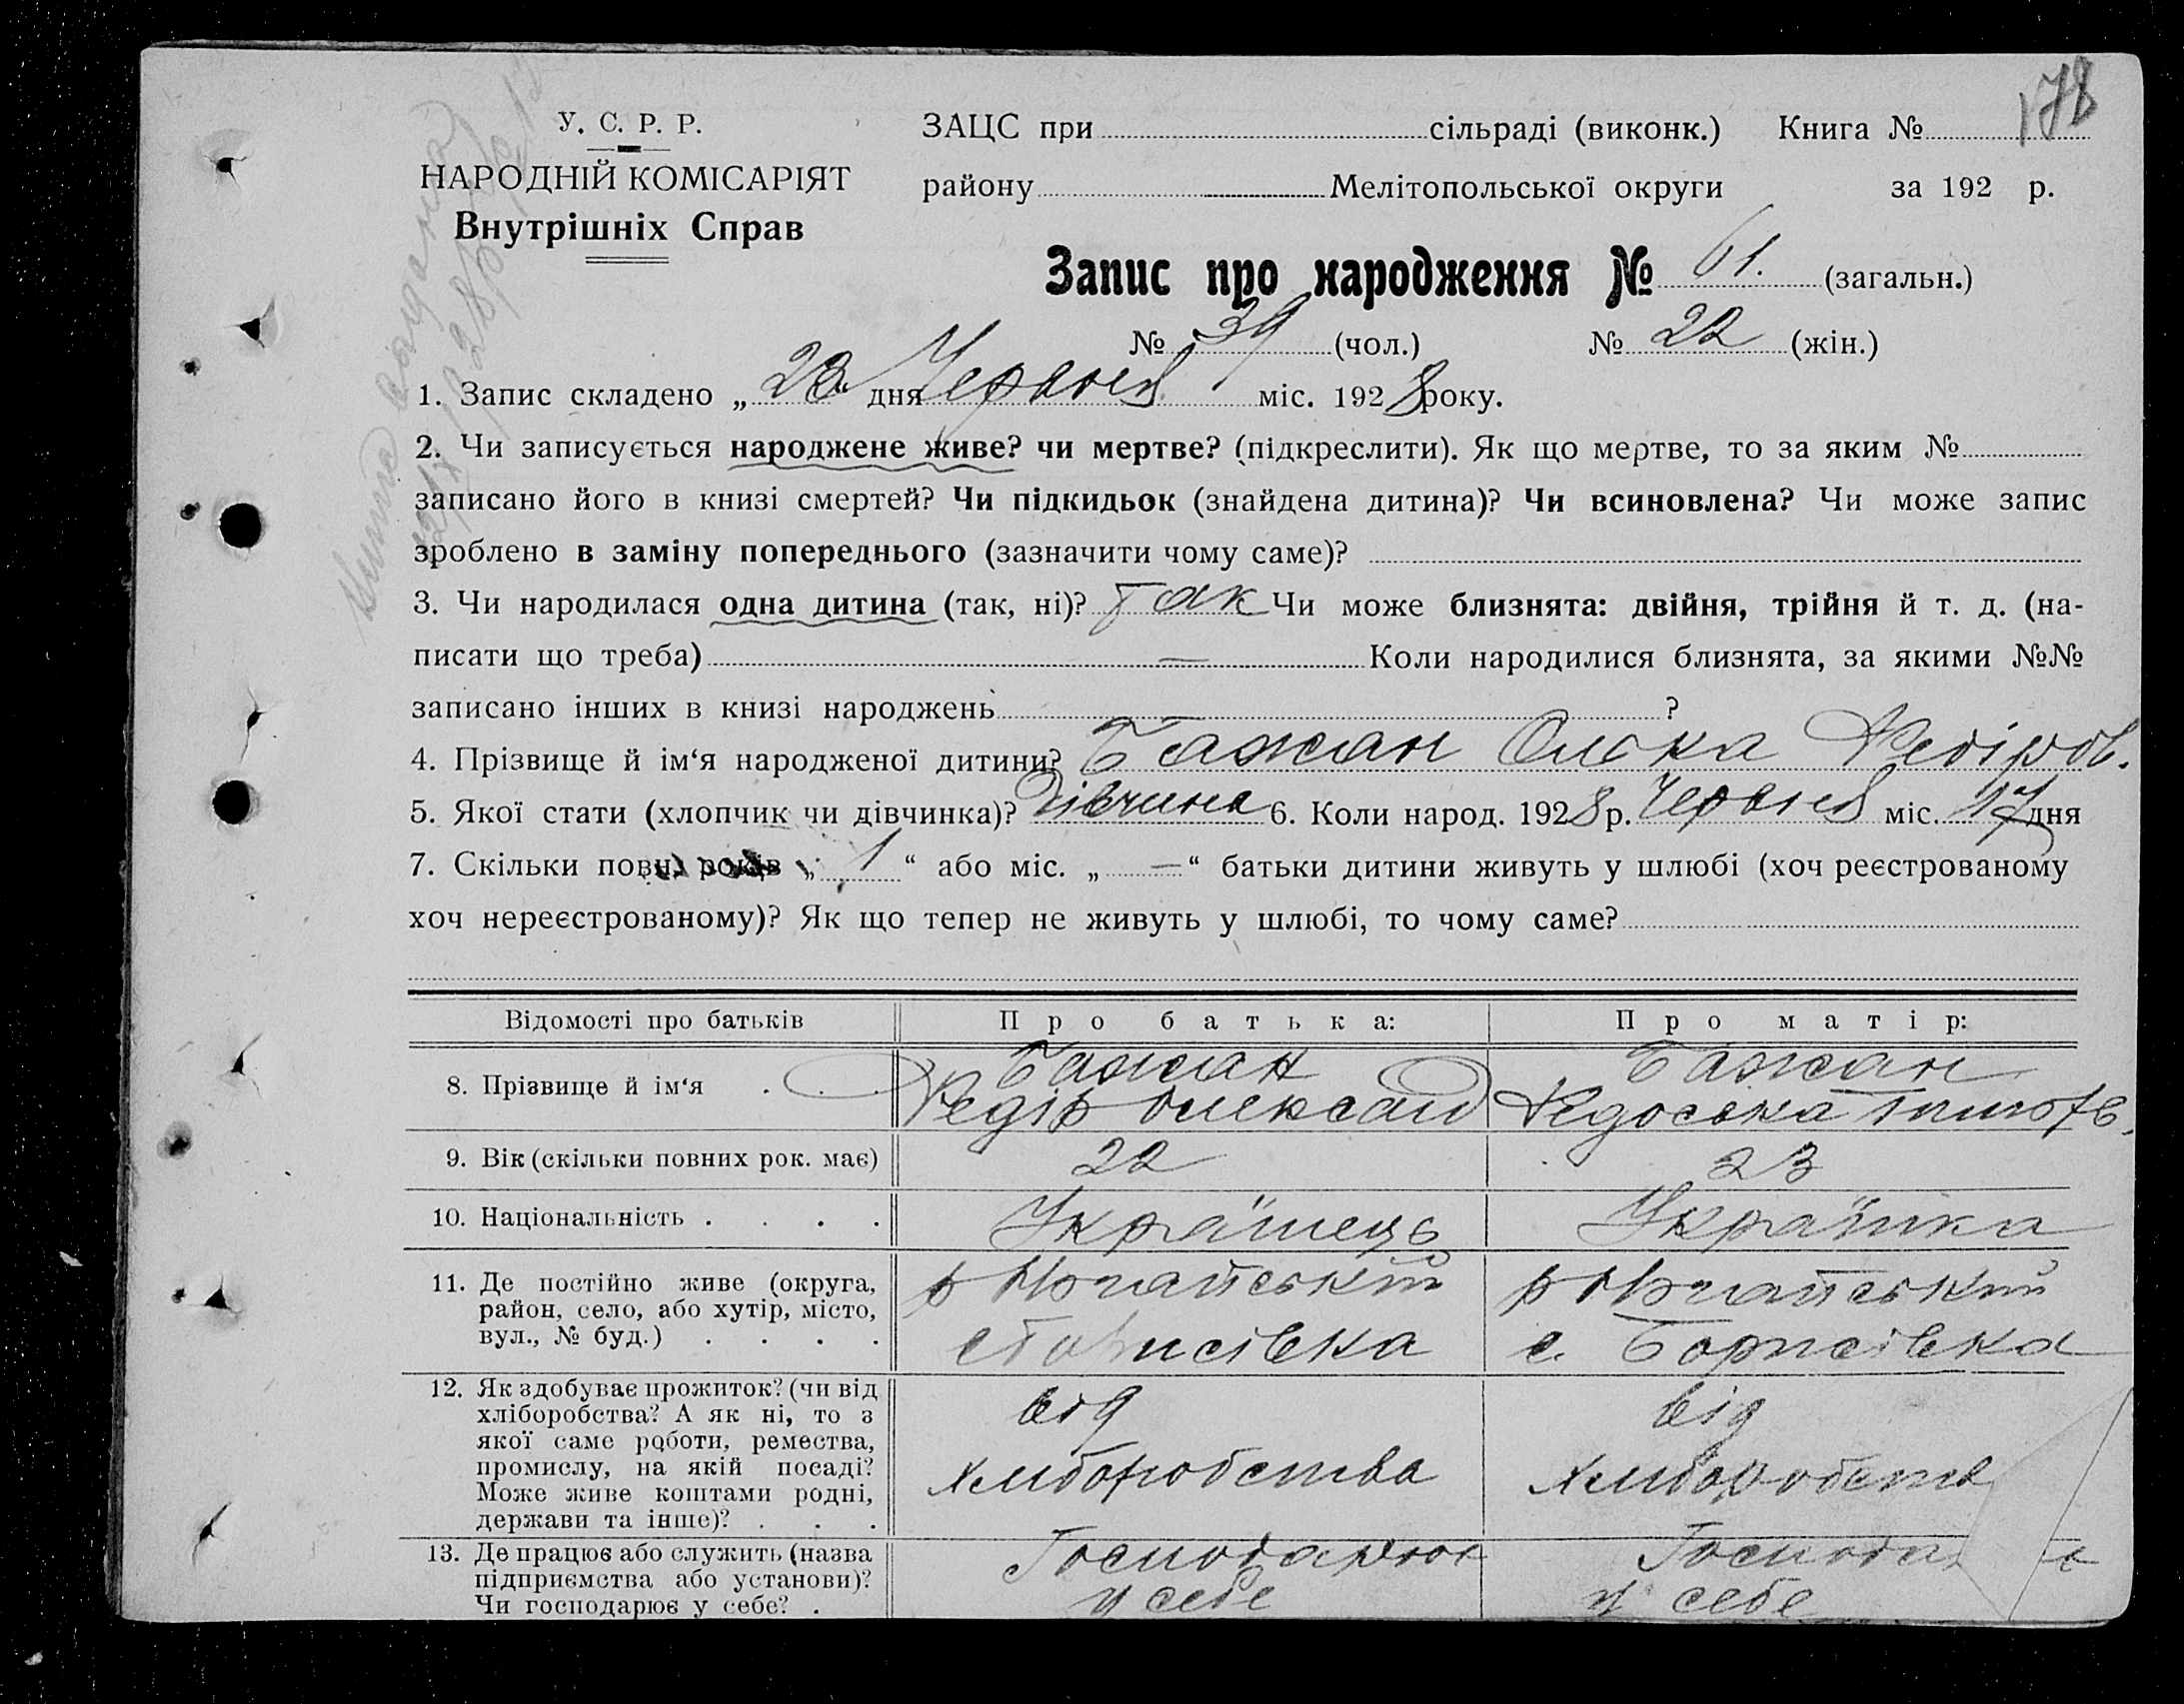 178
У. С. Р. Р.
НАРОДНІЙ КОМІСАРІЯТ
Внутрішніх Справ
ЗАЦС при сільраді (виконк.) Книга №
району Мелітопольської округи за 192 р.
Запис про народження № 61. (загальн.)
№ 39 (чол.) № 22 (жін.)
1. Запис складено „23“ дня Червня міс. 1928 року.
2. Чи записується народжене живе? чи мертве? (підкреслити). Як що мертве, то за яким №
записано його в книзі смертей? Чи підкидьок (знайдена дитина)? Чи всиновлена? Чи може запис
зроблено в заміну попереднього (зазначити чому саме)?
3. Чи народилася одна дитина (так, ні)? Так Чи може близнята: двійня, трійня й т. д. (на-
писати що треба) — Коли народилися близнята, за якими №№
записано інших в книзі народжень ?
4. Прізвище й ім‘я народженої дитини? Бажан Олька Федіров.
5. Якої стати (хлопчик чи дівчинка)? Дівчина 6. Коли народ. 1928 р. Червня міс. 17 дня
7. Скільки повн. років „ 1 “ або міс. „ — “ батьки дитини живуть у шлюбі (хоч реєстрованому
хоч нереєстрованому)? Як що тепер не живуть у шлюбі, то чому саме?
Відомості про батьків Про батька: Про матір:
8. Прізвище й ім‘я . . . Бажан Бажан
Федір Олексан Федоська Тимофе.
9. Вік (скільки повних рок. має) 22 23
10. Національність . . . . Українець Українка
11. Де постійно живе (округа, район, село, або хутір, місто, вул., № буд.) . . . .
р Ногайський р Ногайський
с Борисівка с. Борисівка
12. Як здобуває прожиток? (чи від хліборобства? А як ні, то з якої саме роботи, ремества, промислу, на якій посаді? Може живе коштами родні, держави та інше)? . . .
від від
хліборобства хліборобств
13. Де працює або служить (назва підприємства або установи)? Чи господарює у себе? .
Господарює
у себе у себе